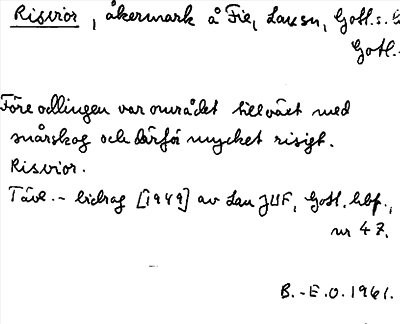 Risvior, åkermark å Fie, Lau sn, Gotl. s.
Gotl.
Före odlingen var området tillväxt med
snårskog och därför mycket risigt.
Risvior.
Tävl.-bidrag [1949] av Lau JUF, Gotl. hbf.,
nr 47.
B.-E.O. 1961.